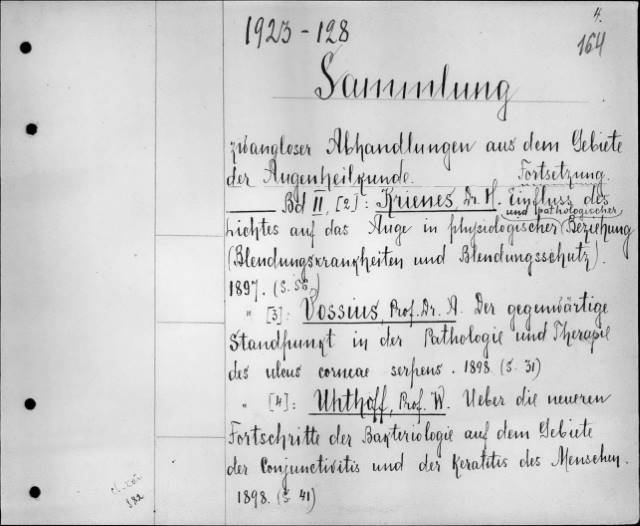 4.
1923-128
164
Sammlung
zwangloser Abhandlungen aus dem Gebiete
der Augenheilkunde. Fortsetzung.
Bd II, [2]: Krienes, Dr. H. Einfluss des
und pathologischer
Lichtes auf das Auge in physiologischer Beziehung
(Blendungskrankheiten und Blendungsschutz).
1897. (S. 56)
" [3]: Vossius, Prof. Dr. A. Der gegenwärtige
Standpunkt in der Pathologie und Therapie
des ulcus corneae serpens. 1898. (S. 31)
" [4]: Uhthoff, Prof. W. Ueber die neueren
Fortschritte der Bakteriologie auf dem Gebiete
der Conjunctivitis und der Keratitis des Menschen.
1898. (S. 41)
182